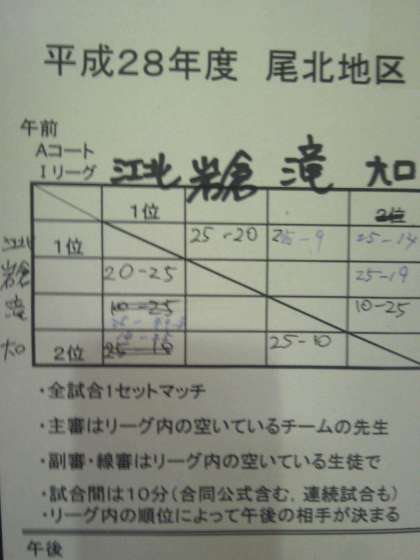 平成28年度 尾北地区
午前
Aコート
Iリーグ 江北 岩倉 滝 大口
1位 2位
江北 1位 25-20 25-9 25-14
岩倉 20-25 25-19
滝 10-25 10-25
大口 2位 25-10
・全試合1セットマッチ
・主審はリーグ内の空いているチームの先生
・副審・線審はリーグ内の空いている生徒で
・試合間は10分(合同公式含む，連続試合も)
・リーグ内の順位によって午後の相手が決まる
午後